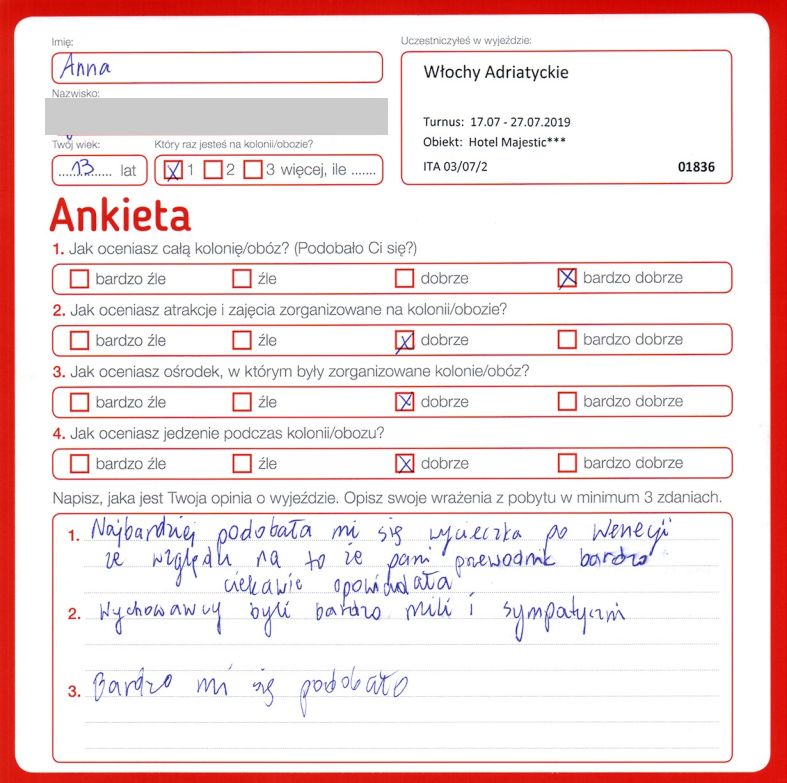 Imię:
Anna
Nazwisko:
Twój wiek:
13 lat
Który raz jesteś na kolonii/obozie?
1 2 3 więcej, ile .......
Uczestniczyłeś w wyjeździe:
Włochy Adriatyckie
Turnus: 17.07 - 27.07.2019
Obiekt: Hotel Majestic***
ITA 03/07/2 01836
Ankieta
1. Jak oceniasz całą kolonię/obóz? (Podobało Ci się?)
bardzo źle źle dobrze bardzo dobrze
2. Jak oceniasz atrakcje i zajęcia zorganizowane na kolonii/obozie?
bardzo źle źle dobrze bardzo dobrze
3. Jak oceniasz ośrodek, w którym były zorganizowane kolonie/obóz?
bardzo źle źle dobrze bardzo dobrze
4. Jak oceniasz jedzenie podczas kolonii/obozu?
bardzo źle źle dobrze bardzo dobrze
Napisz, jaka jest Twoja opinia o wyjeździe. Opisz swoje wrażenia z pobytu w minimum 3 zdaniach.
1. Najbardziej podobała mi się wycieczka po Wenecji
ze względu na to że pani przewodnik bardzo
ciekawie opowiadała
2. Wychowawcy byli bardzo mili i sympatyczni
3. Bardzo mi się podobało